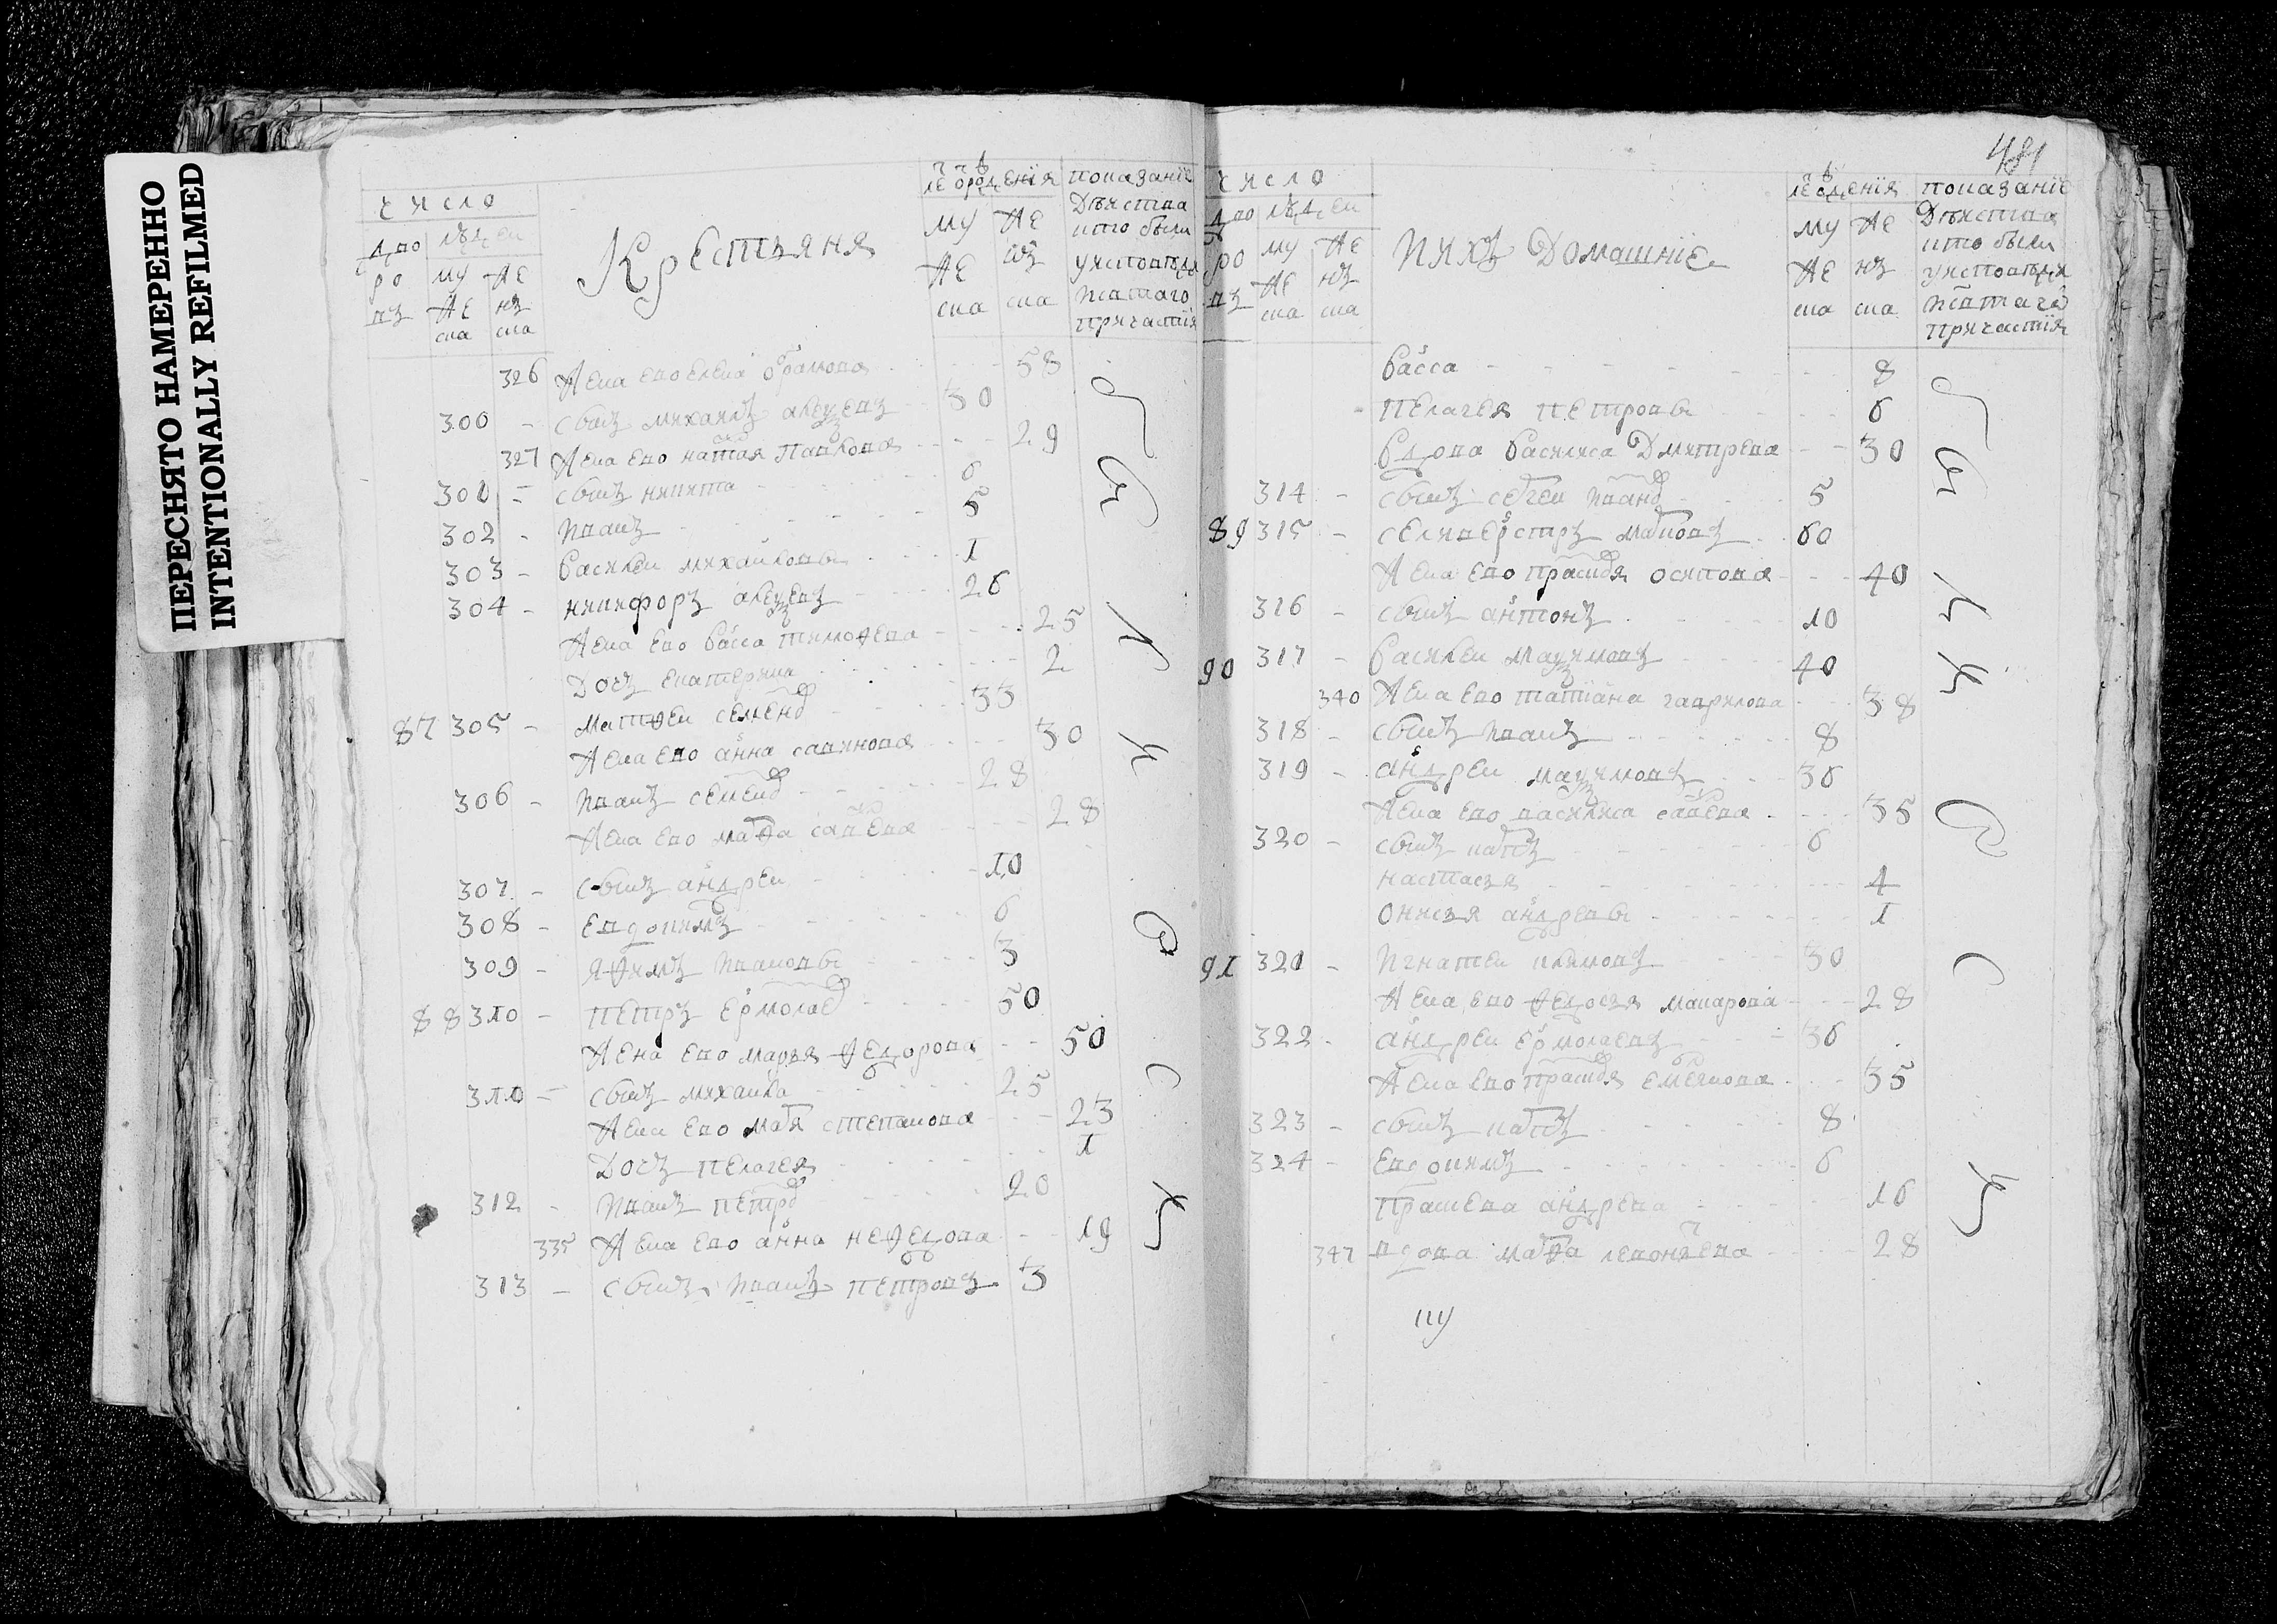 ПЕРЕСНЯТО НАМЕРЕННО
INTENTIONALLY REFILMED
число
дво людей
ро му же
въ же нъ
ска ска
Крестьяня
лет от рождения
му же
же нъ
ска ска
показаніе
Действа
кто были
у исповеди
и святаго
причастія
326 Жена ево елена абрамова 58
300 - сынъ михаилъ алеѯеевъ 30
327 Жена ево наталя павлова 29
301 - сынъ никита 6
302 - иванъ 5
303 - василеи михаиловы 1
304 - никифоръ алеѯеевъ 26
Жена ево васса тимоѳева 25
Дочъ екатерина 2
87 305 - матѳеи семенов 33
Жена ево анна савинова 30
306 - иванъ семенов 28
Жена ево марѳа савелева 28
307 - сынъ андреи 10
308 - евдокимъ 6
309 - яѳимъ ивановы 3
88 310 - петръ ермолаев 50
Жена ево маря ѳедорова 50
310 - сынъ михаила 25
Жена ево маря степанова 23
Дочъ пелагея 1
312 - иванъ петров 20
335 Жена ево анна неѳедова 19
313 - сынъ иванъ петровъ 3
481
число
дво людей
ро му же
въ же нъ
ска ска
ихъ Домашніе
лет от рождения
му же
же нъ
ска ска
показаніе
Действа
кто были
у исповеди
и святаго
причастія
васса 8
пелагея петровы 6
вдова василиса Дмитрева 30
314 - сынъ сергеи иванов 5
89 315 - селиверстръ марковъ 60
Жена ево прасковя осипова 40
316 - сынъ антонъ 10
90 317 - василеи маѯимовъ 40
340 Жена ево татіана гаврилова 38
318 - сынъ иванъ 8
319 - андреи маѯимовъ 36
Жена ево василиса савелева 35
320 - сынъ карпъ 6
настасъя 4
онисъя андреевы 1
91 321 - игнатеи климовъ 30
Жена ево ѳедосъя макарова 28
322 - андреи ермолаевъ 36
Жена ево прасковя емелянова 35
323 - сынъ карпъ 8
324 - евдокимъ 6
прасковя андреева 16
347 вдова марѳа левонтъева 28